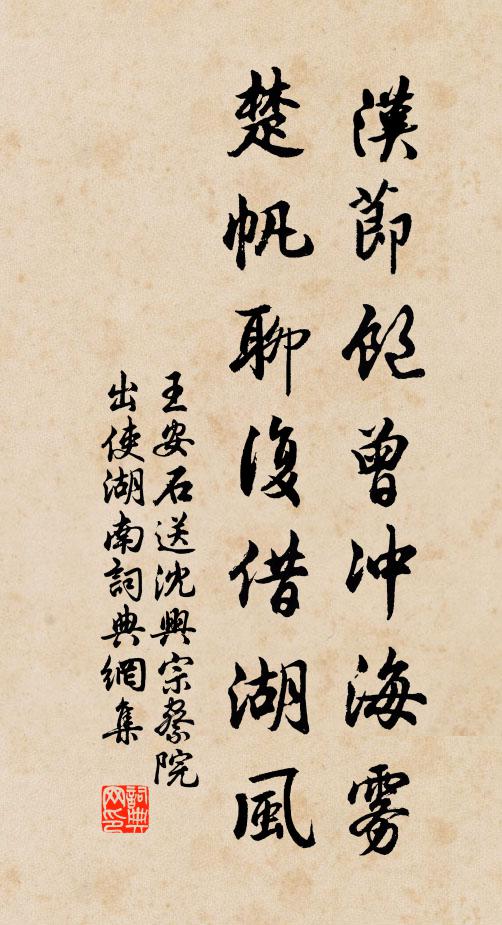 漢節飽曾冲海雾
楚帆聊復借湖風
王安石送沈興宗察院
出使湖南詞典網集
詞典網印